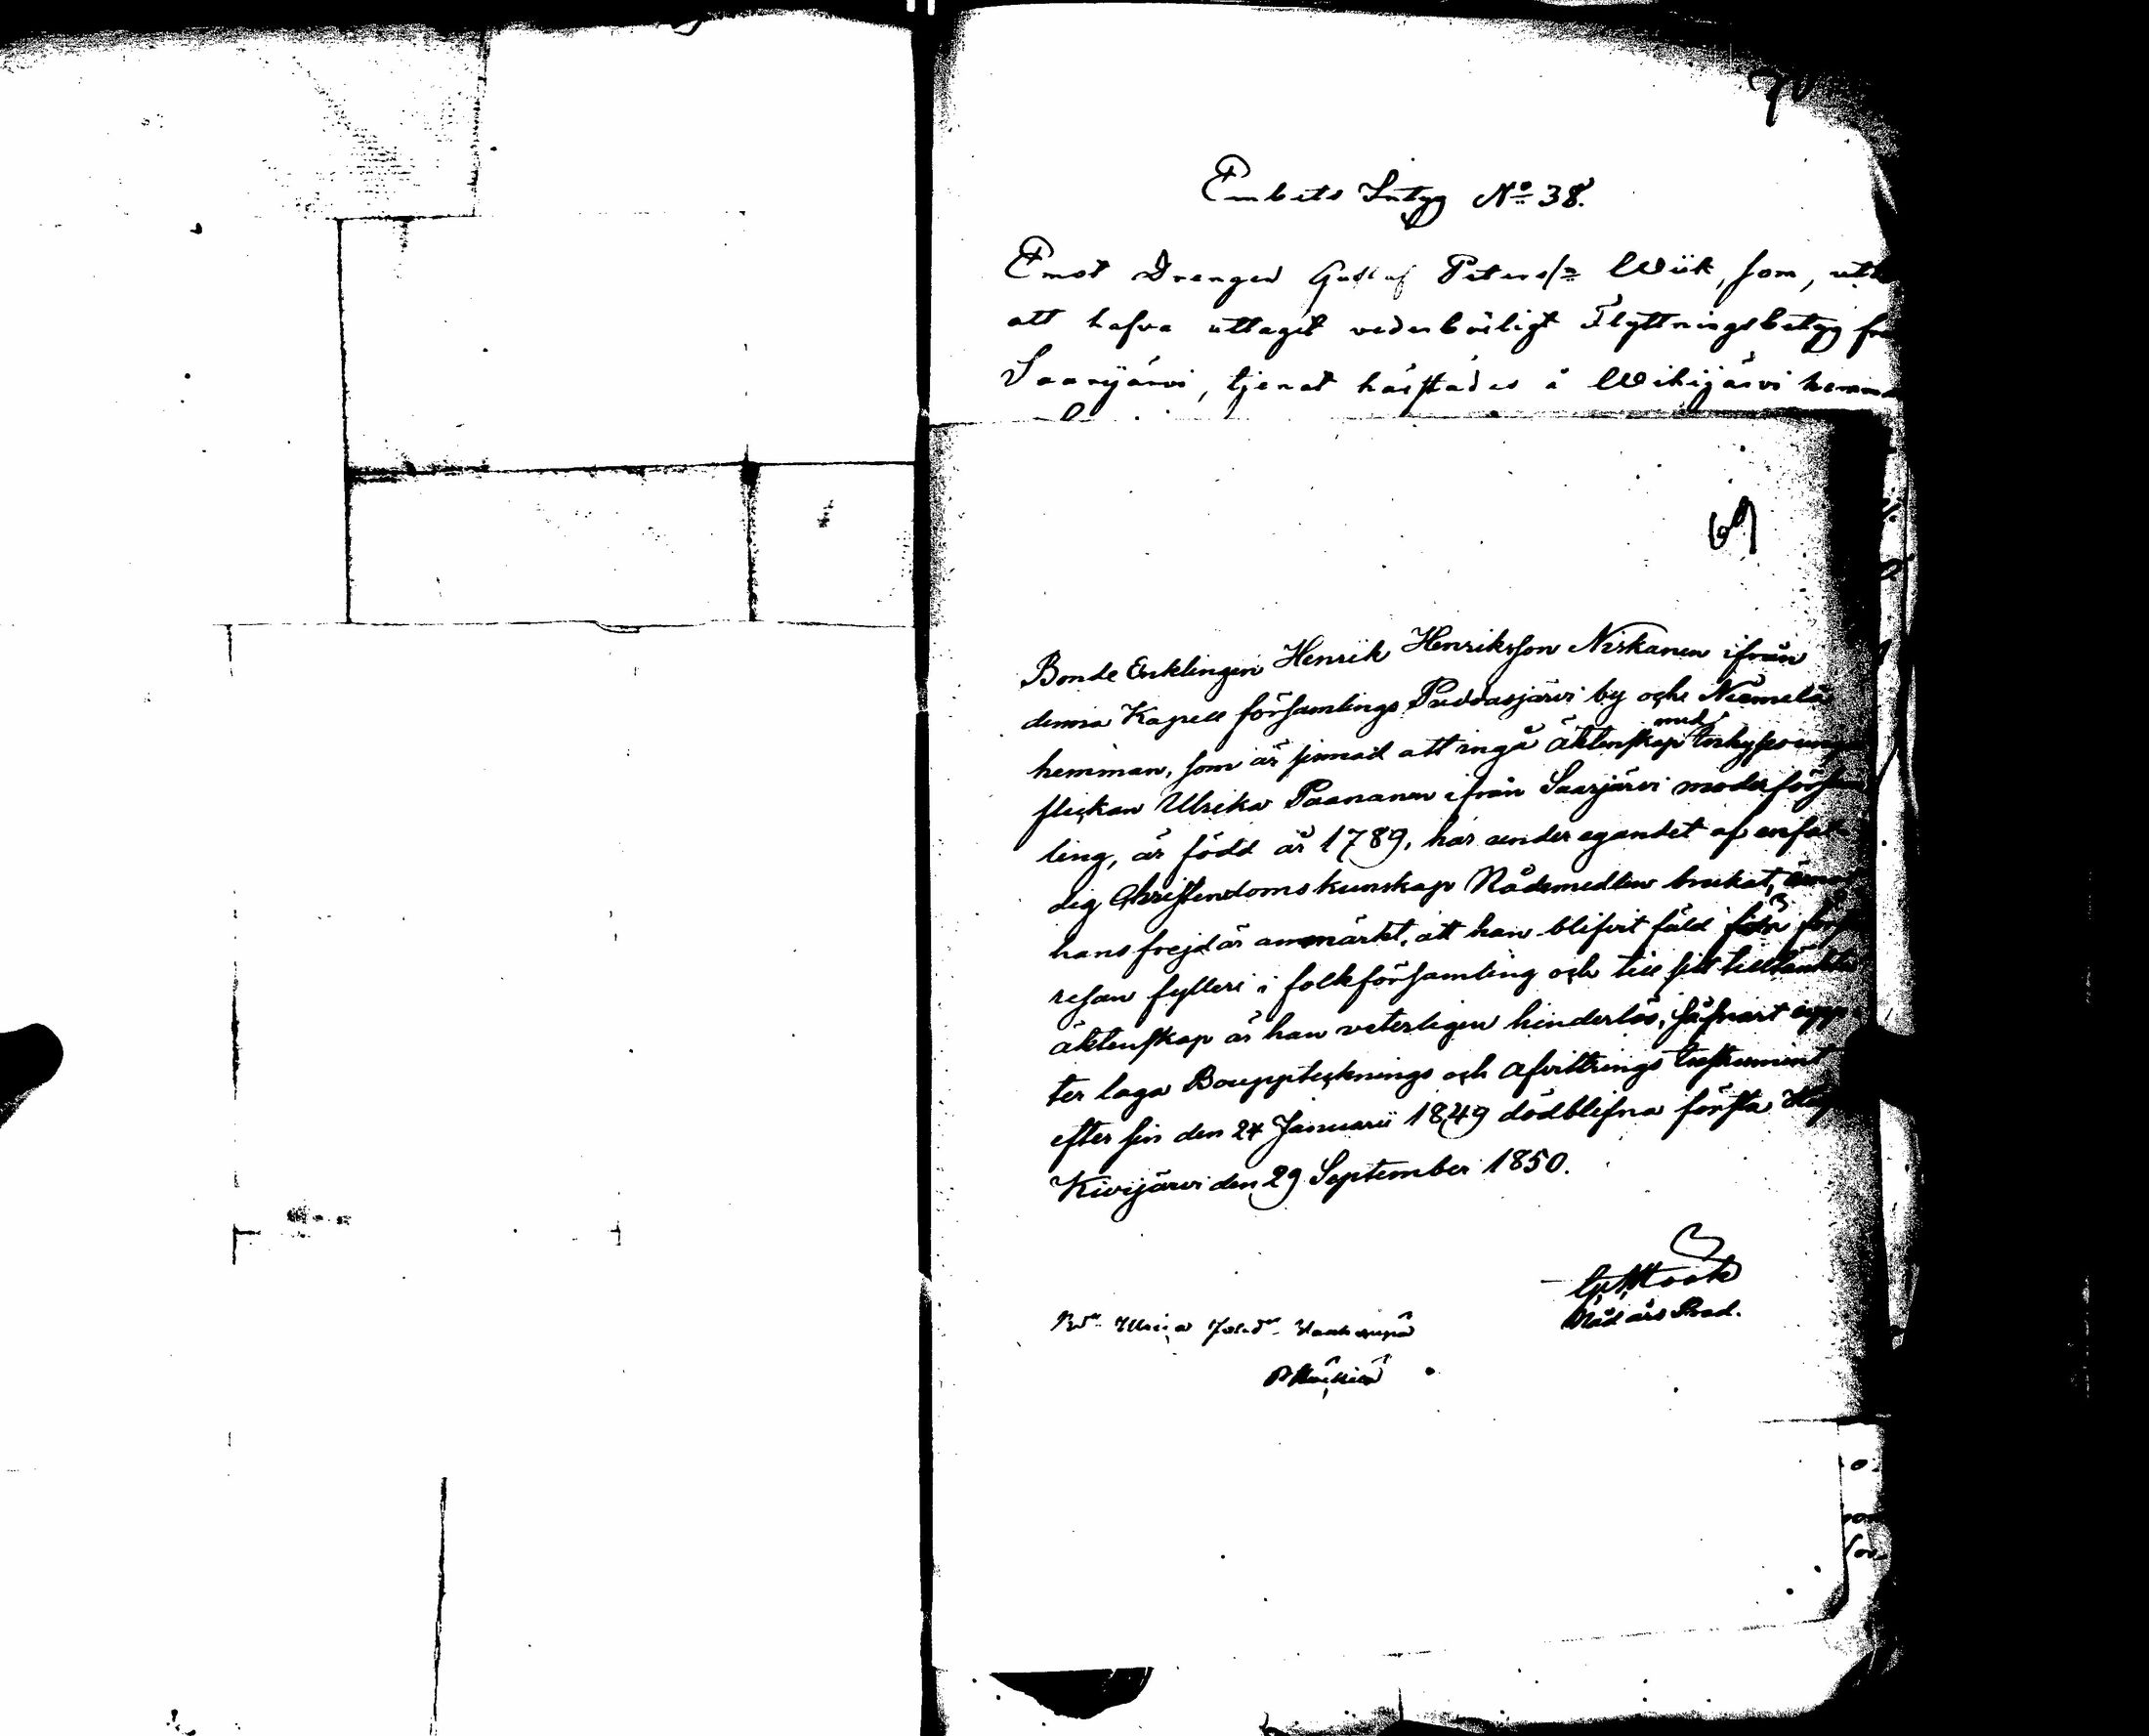 70
Embets Intyg No 38.
Emot Drengen Gustaf Peterss Wiik, som, utan
att hafva uttagit vederbörligt Flyttningsbetyg
Saarijärvi, tjenat härstädes å Wihijärvi
69
Bonde Enklingen Henrik Henriksson Niskanen ifrån
denna Kapell församlings Puddasjärvi by och Niemelä
hemman, som är sinnad att ingå äktenskap med
flickan Ulrika Paananen ifrån Saarjärvi moderförsam
ling, är född år 1789, har under egandet af enfal
dig Christendoms kunskap Nådemedlen brukat,
hans frejd är anmärkt, att han blifvit fäld för
resan fylleri i folkförsamling och till sitt tilltänkta
äktenskap är han veterligen hinderlös, såsnart upp
ter laga Bouppteknings och Afvittrings Instrument
efter sin den 24 Januarii 1849 dödblifna första
Kivijärvi den 29 September 1850.